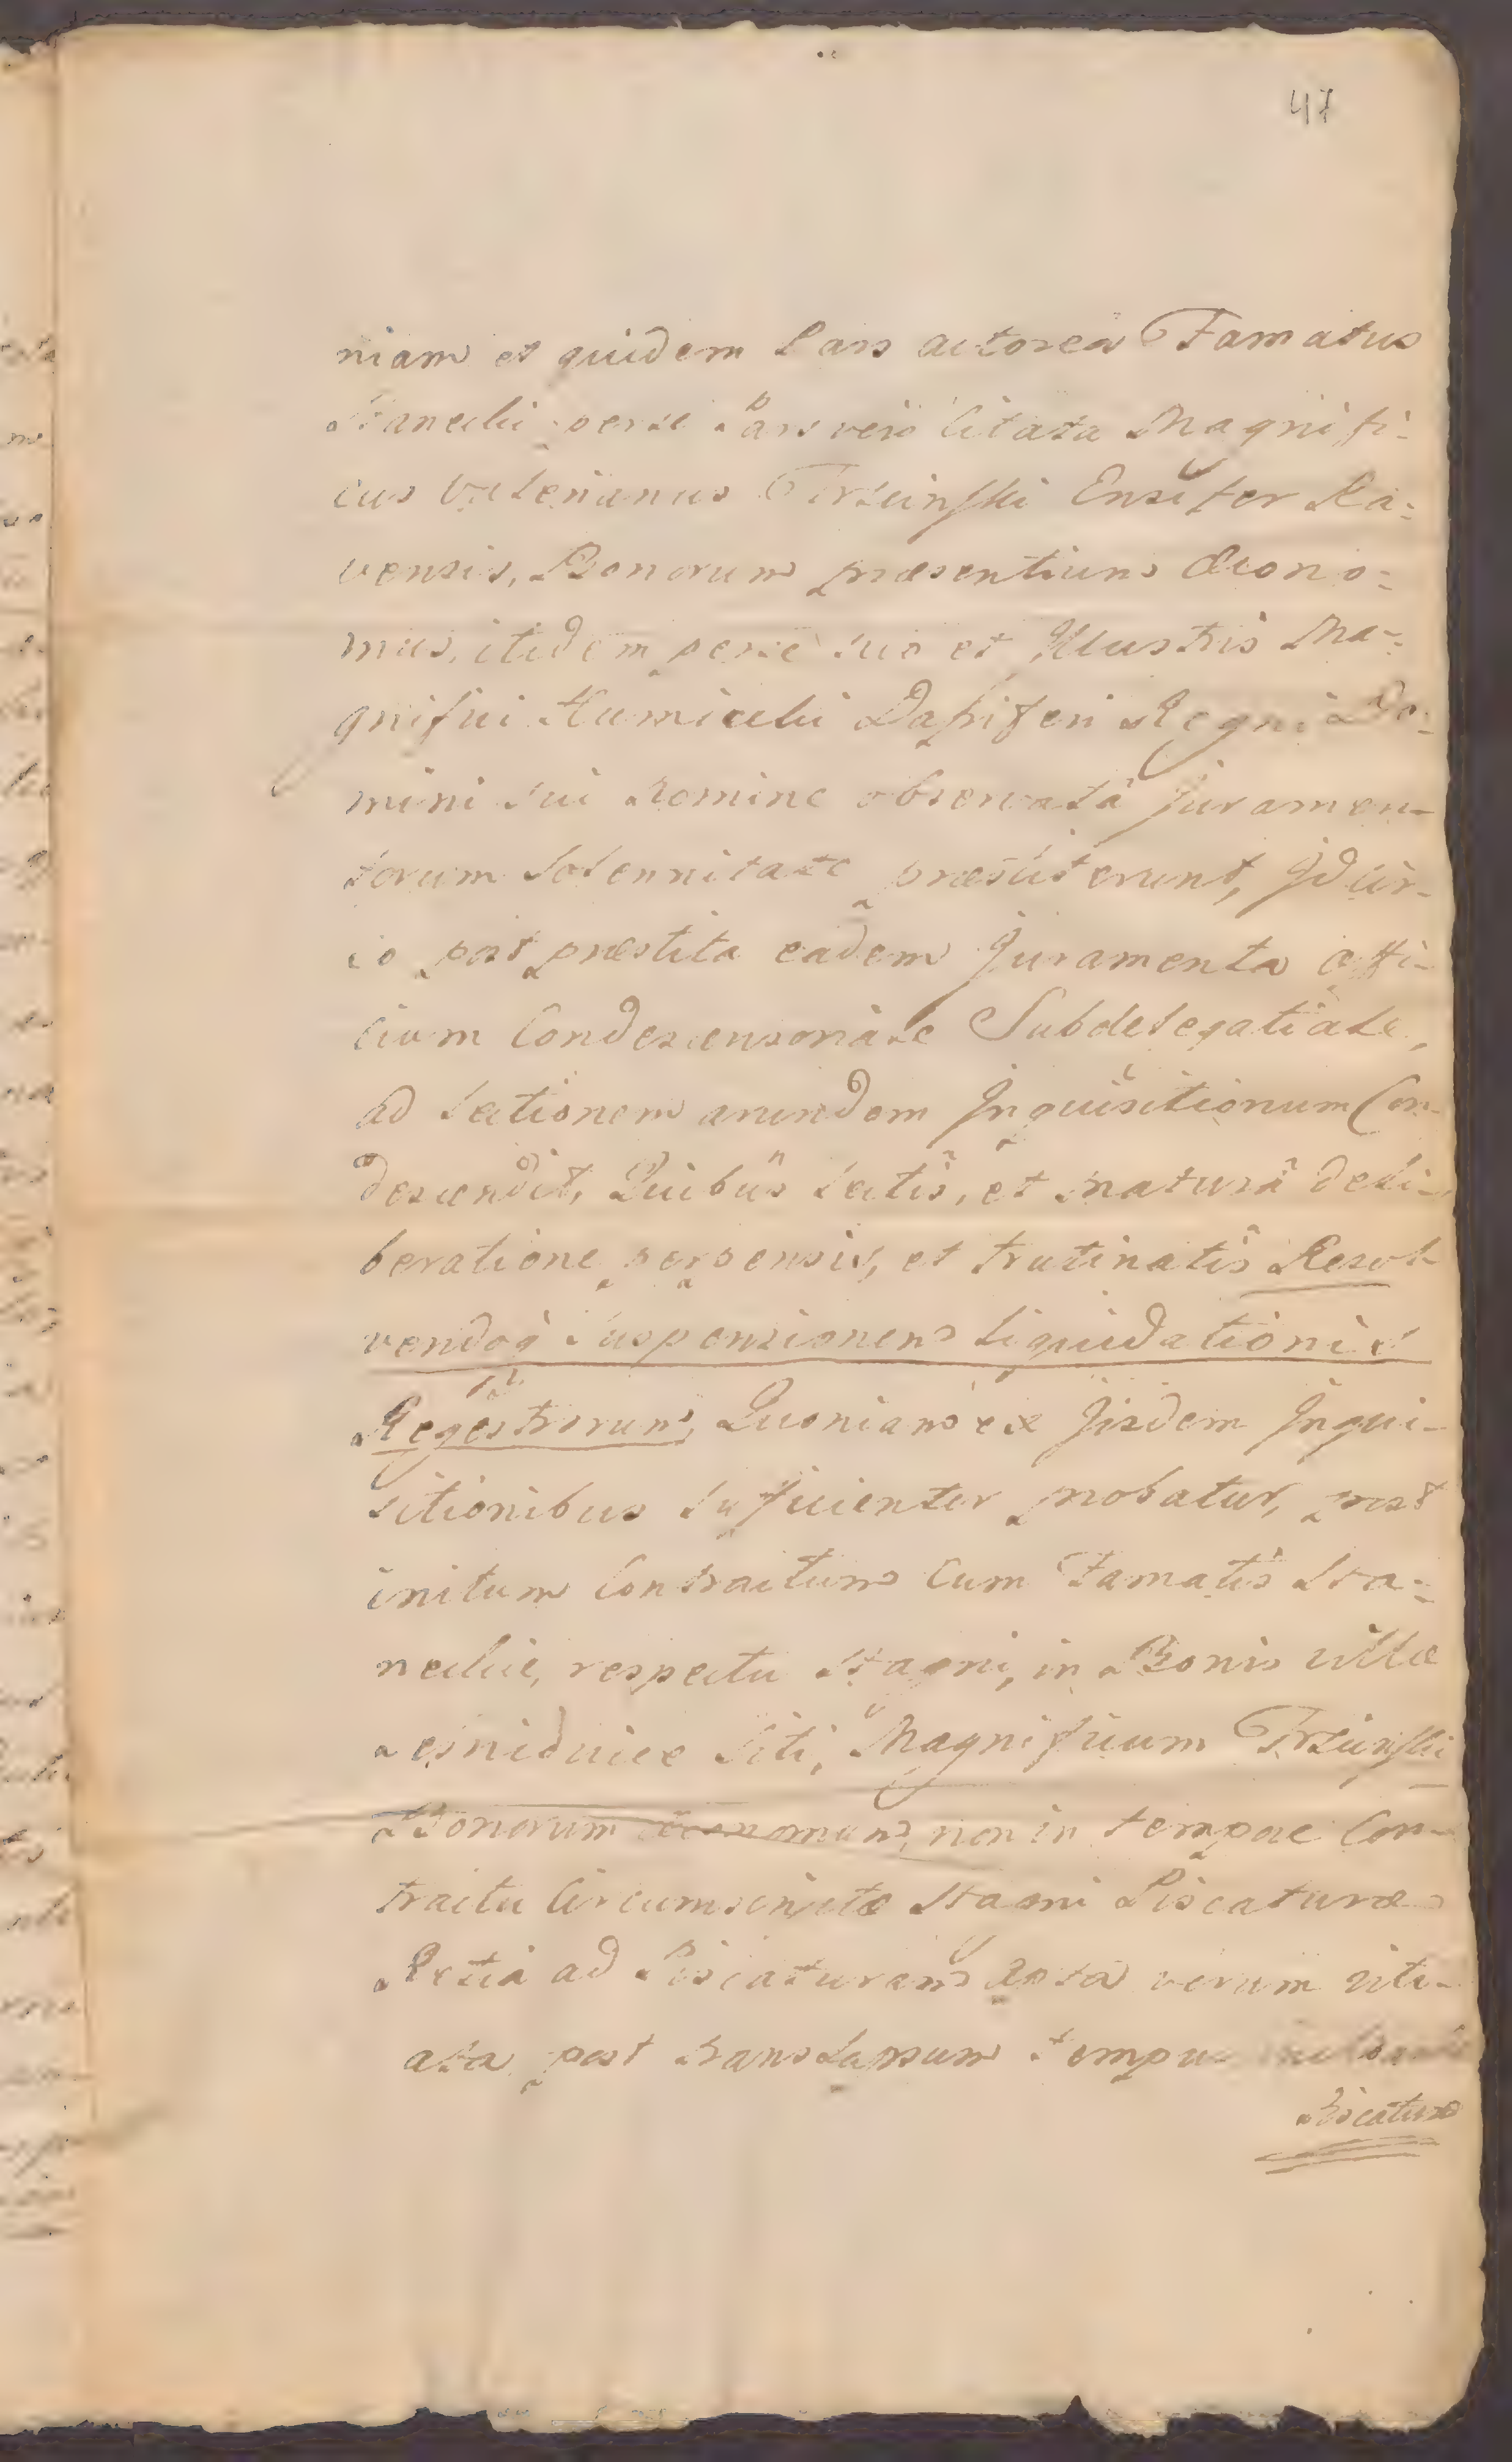 47
niam et quidem Pars actorea Famatus
Stanecki per se Pars vero Citata Magnifi-
cus Valerianus Trzcinski Ensifer Ra-
vensis, Bonorum praesentium Oecono-
mus, itidem per se suo et Illustris Ma-
gnifici Kumicki Dapiferi Regni Do-
mini sui Nomine observatâ juramen-
torum Solennitate praestiterunt, Idcir-
co post praestita eadem Juramenta Offi-
cium Condescensoriale Subdelegatiale,
ad Lectionem earundem Inquisitionum Con-
descendit, Quibus Lectis, et maturâ deli-
beratione perpensis, et trutinatis Resol-
vendoq Suspensionem Liquidationis
Regestrorum, Quoniam ex Jisdem Inqui-
sitionibus Sufficienter probatur, post
initum Contractum Cum Famatis Sta-
neckie, respectu Stagni, in Bonis villae
Lesnidwice Siti, Magnificum Trzcinski
Bonorum Oeconomum, non in tempore Con-
tractu Circumscriptae Stagni Piscaturae
Retia ad Piscaturam apta verum viti-
ata post translapsum tempus
Piscaturae